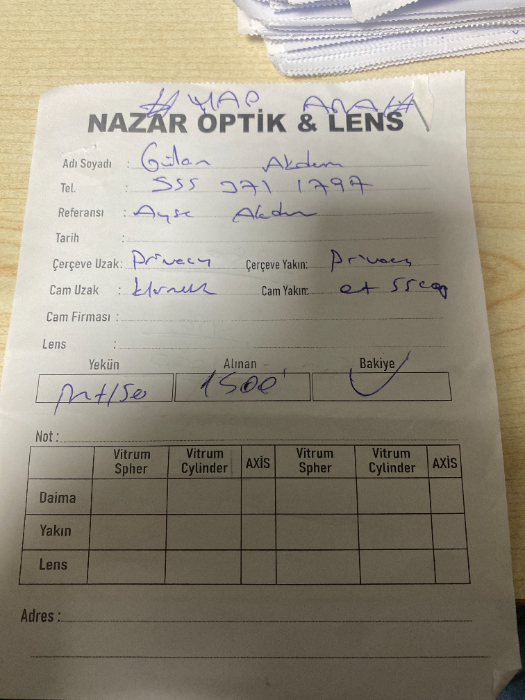 # YAP ARA #
NAZAR OPTİK & LENS
Adı Soyadı : Gülan Akdem
Tel. : 555 371 1797
Referansı : Ayşe
Tarih :
Çerçeve Uzak: Privacy Çerçeve Yakın: Privacy
Cam Uzak : Cam Yakın:
Cam Firması :
Lens :
Yekün Alınan Bakiye
1500
Not :
Vitrum Spher Vitrum Cylinder AXİS Vitrum Spher Vitrum Cylinder AXİS
Daima
Yakın
Lens
Adres :